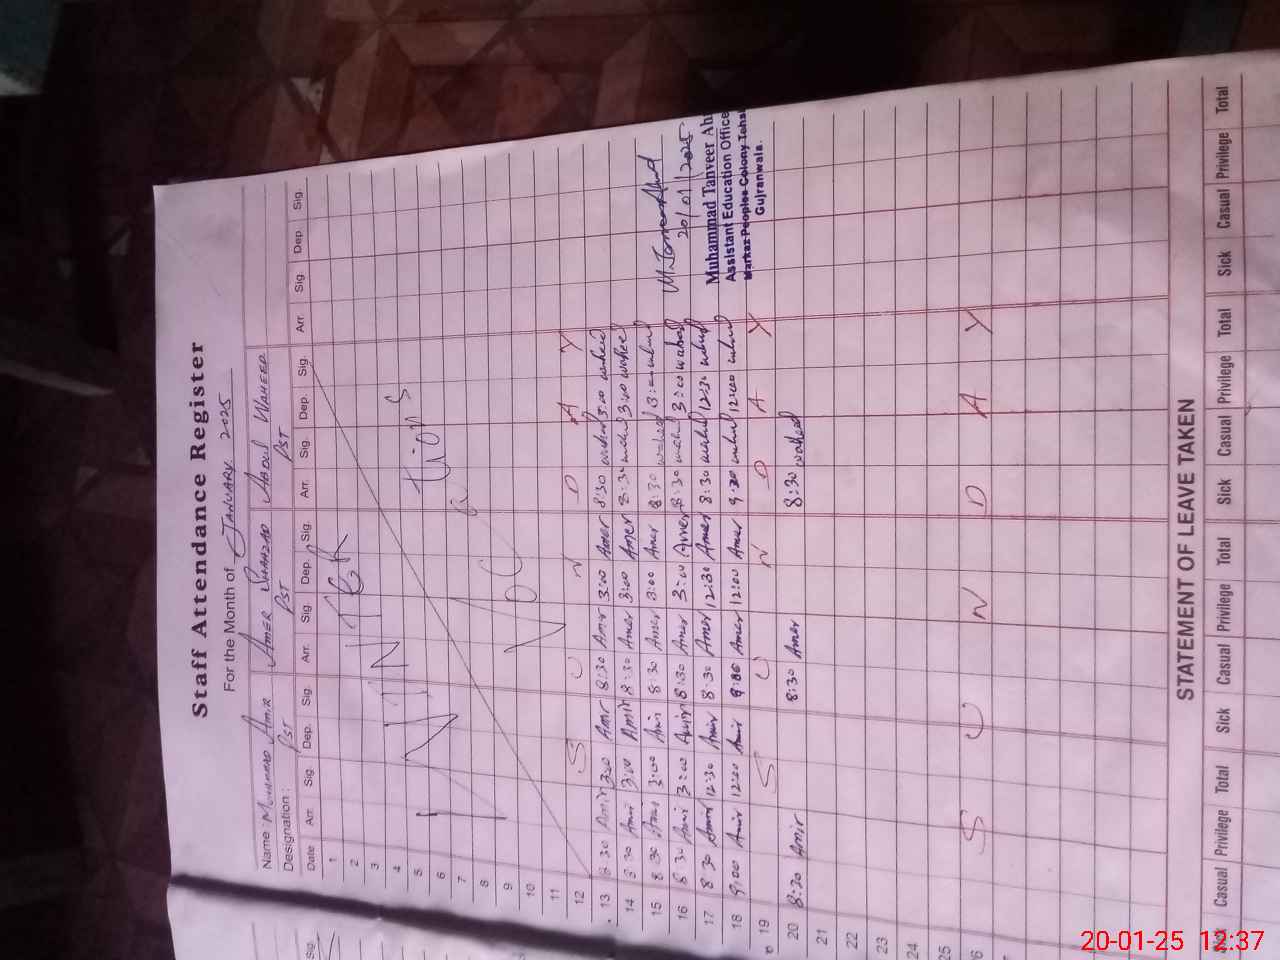 Staff Attendance Register
For the Month of JANUARY 2025
Name: MUHAMMAD AMIR AMER SHAHZAD ABDUL WAHEED
Designation: PST PST PST
Date Arr. Sig. Dep. Sig. Arr. Sig. Dep. Sig. Arr. Sig. Dep. Sig. Arr. Sig. Dep. Sig.
1
2
3
4
5
6
7
8
9
10
11
WINTER
Vacations
12 SUNDAY
13 8:30 Amir 3:00 Amir 8:30 Amer 3:00 Amer 8:30 waheed 3:00 waheed
14 8:30 Amir 3:00 Amir 8:30 Amer 3:00 Amer 8:30 waheed 3:00 waheed
15 8:30 Amir 3:00 Amir 8:30 Amer 3:00 Amer 8:30 waheed 3:00 waheed
16 8:30 Amir 3:00 Amir 8:30 Amer 3:00 Amer 8:30 waheed 3:00 waheed
17 8:30 Amir 12:30 Amir 8:30 Amer 12:30 Amer 8:30 waheed 12:30 waheed
18 9:00 Amir 12:00 Amir 9:00 Amer 12:00 Amer 9:00 waheed 12:00 waheed
19 SUNDAY
20 8:30 Amir 8:30 Amer 8:30 waheed
21
22
23
24
25
26 SUNDAY
20/01/2025
Muhammad Tanveer
Assistant Education Office
Markaz Peoples Colony
Gujranwala.
STATEMENT OF LEAVE TAKEN
Sick Casual Privilege Total Sick Casual Privilege Total Sick Casual Privilege Total Sick Casual Privilege Total
20-01-25 12:37